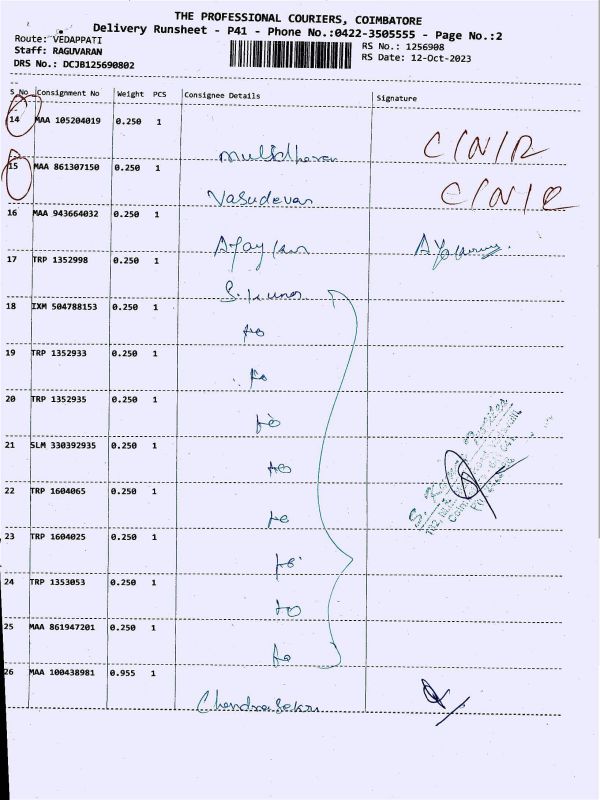 THE PROFESSIONAL COURIERS, COIMBATORE
Delivery Runsheet - P41 - Phone No.:0422-3505555 - Page No.:2
Route: VEDAPPATI
Staff: RAGUVARAN
DRS No.: DCJB125690802
RS No.: 1256908
RS Date: 12-Oct-2023
S No Consignment No Weight PCS Consignee Details Signature
14 MAA 105204019 0.250 1
C/N/R
15 MAA 861307150 0.250 1
Vasudevan C/N/R
16 MAA 943664032 0.250 1
17 TRP 1352998 0.250 1
S. Kumar
18 IXM 504788153 0.250 1
19 TRP 1352933 0.250 1
20 TRP 1352935 0.250 1
21 SLM 330392935 0.250 1
22 TRP 1604065 0.250 1
23 TRP 1604025 0.250 1
24 TRP 1353053 0.250 1
25 MAA 861947201 0.250 1
26 MAA 100438981 0.955 1